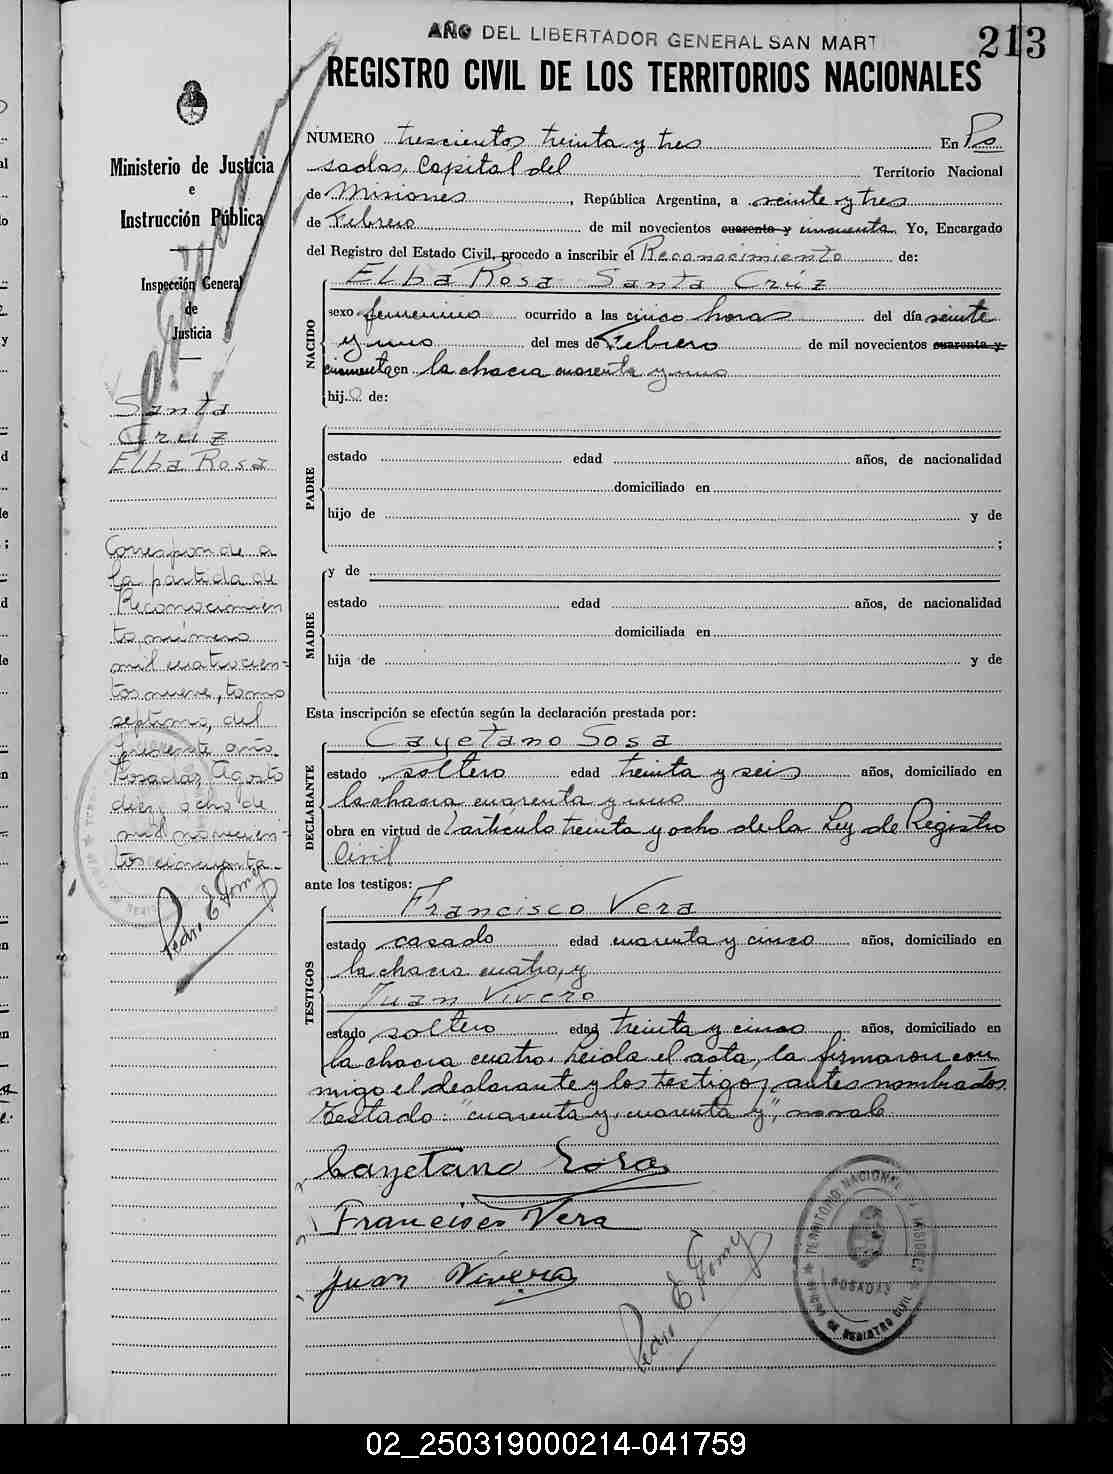 AÑO DEL LIBERTADOR GENERAL SAN MART
213
REGISTRO CIVIL DE LOS TERRITORIOS NACIONALES
Ministerio de Justicia
e
Instrucción Pública
Inspección General
de
Justicia
Santa
Cruz
Elba Rosa
Corresponde a
la partida de
Reconocimien
to número
mil cuatrocien=
tos nueve, tomo
septimo, del
presente año.
Posadas, Agosto
diez y ocho de
mil novecien-
tos cincuenta.
Pedro E Gomez
NUMERO trescientos treinta y tres En Po
sadas, Capital del Territorio Nacional
de Misiones, República Argentina, a veinte y tres
de Febrero de mil novecientos cuarenta y cincuenta. Yo, Encargado
del Registro del Estado Civil, procedo a inscribir el Reconocimiento de:
Elba Rosa Santa Crúz
NACIDO
sexo femenino ocurrido a las cinco horas del día veinte
y uno del mes de Febrero de mil novecientos cuarenta y
cincuenta en la chacra cuarenta y uno
hij de:
PADRE
estado edad años, de nacionalidad
domiciliado en
hijo de y de
;
MADRE
y de
estado edad años, de nacionalidad
domiciliada en
hija de y de
Esta inscripción se efectúa según la declaración prestada por:
DECLARANTE
Cayetano Sosa
estado soltero edad treinta y seis años, domiciliado en
la chacra cuarenta y uno
obra en virtud del artículo treinta y ocho de la Ley de Registro
Civil
ante los testigos:
TESTIGOS
Francisco Vera
estado casado edad cuarenta y cinco años, domiciliado en
la chacra cuatro, y
Juan Vivero
estado soltero edad treinta y cinco años, domiciliado en
la chacra cuatro. Leida el acta, la firmaron con
migo el declarante y los testigos antes nombrados.
Testado: "cuarenta y, cuarenta y", no vale
Cayetano Sosa
Francisco Vera
Juan Vivero
Pedro E Gomez
TERRITORIO NACIONAL DE MISIONES
POSADAS
DE REGISTRO CIVIL
02_250319000214-041759